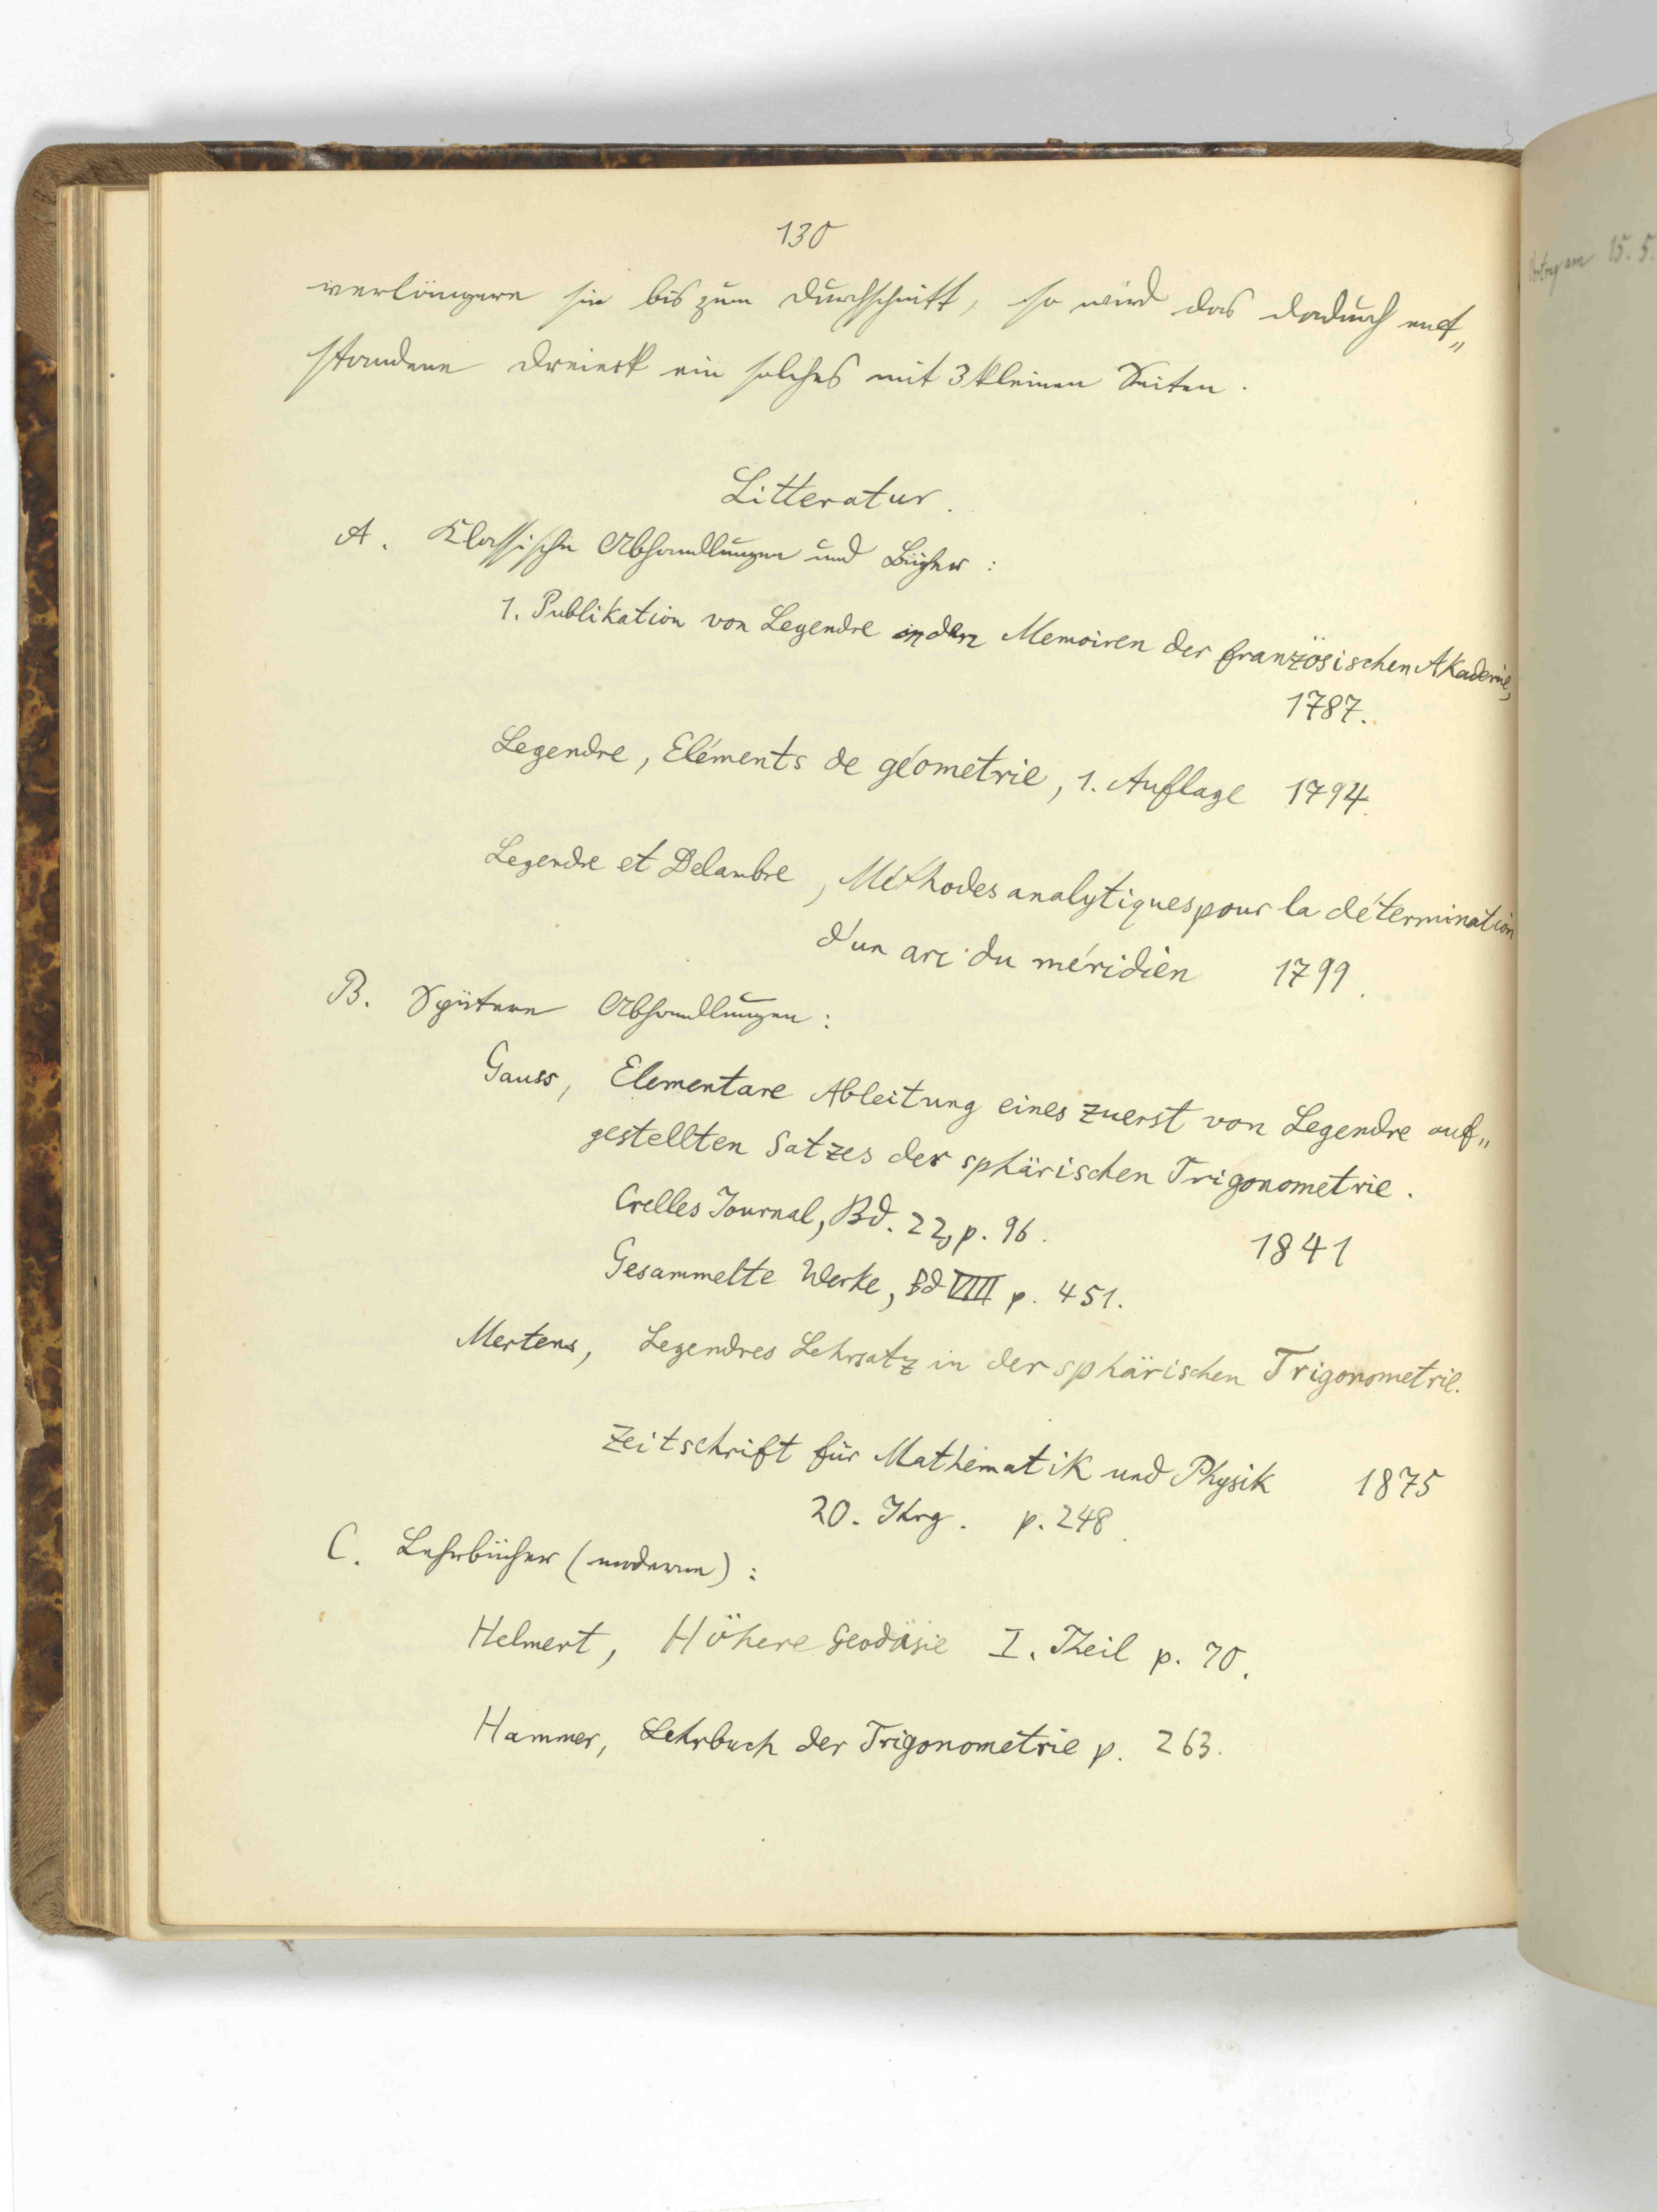 130
verlängern sie bis zum Durchschnitt, so wird das dadurch ent„
standene Dreieck ein solches mit 3 kleinen Seiten.
Litteratur.
A. Klassische Abhandlungen und Bücher:
1. Publikation von Legendre in den Memoiren der französischen Akademie,
1787.
Legendre, Eléments de géometrie, 1. Auflage 1794.
Legendre et Delambre, Méthodes analytiques pour la détermination
d'un arc du méridien 1799.
B. Spätere Abhandlungen:
Gauss, Elementare Ableitung eines zuerst von Legendre auf„
gestellten Satzes der sphärischen Trigonometrie.
Crelles Journal, Bd. 22, p. 96. 1841
Gesammelte Werke, Bd VIII p. 451.
Mertens, Legendres Lehrsatz in der sphärischen Trigonometrie.
Zeitschrift für Mathematik und Physik 1875
20. Jhrg. p. 248.
C. Lehrbücher (moderne):
Helmert, Höhere Geodäsie I. Theil p. 70.
Hammer, Lehrbuch der Trigonometrie p. 263.
am 15. 5.